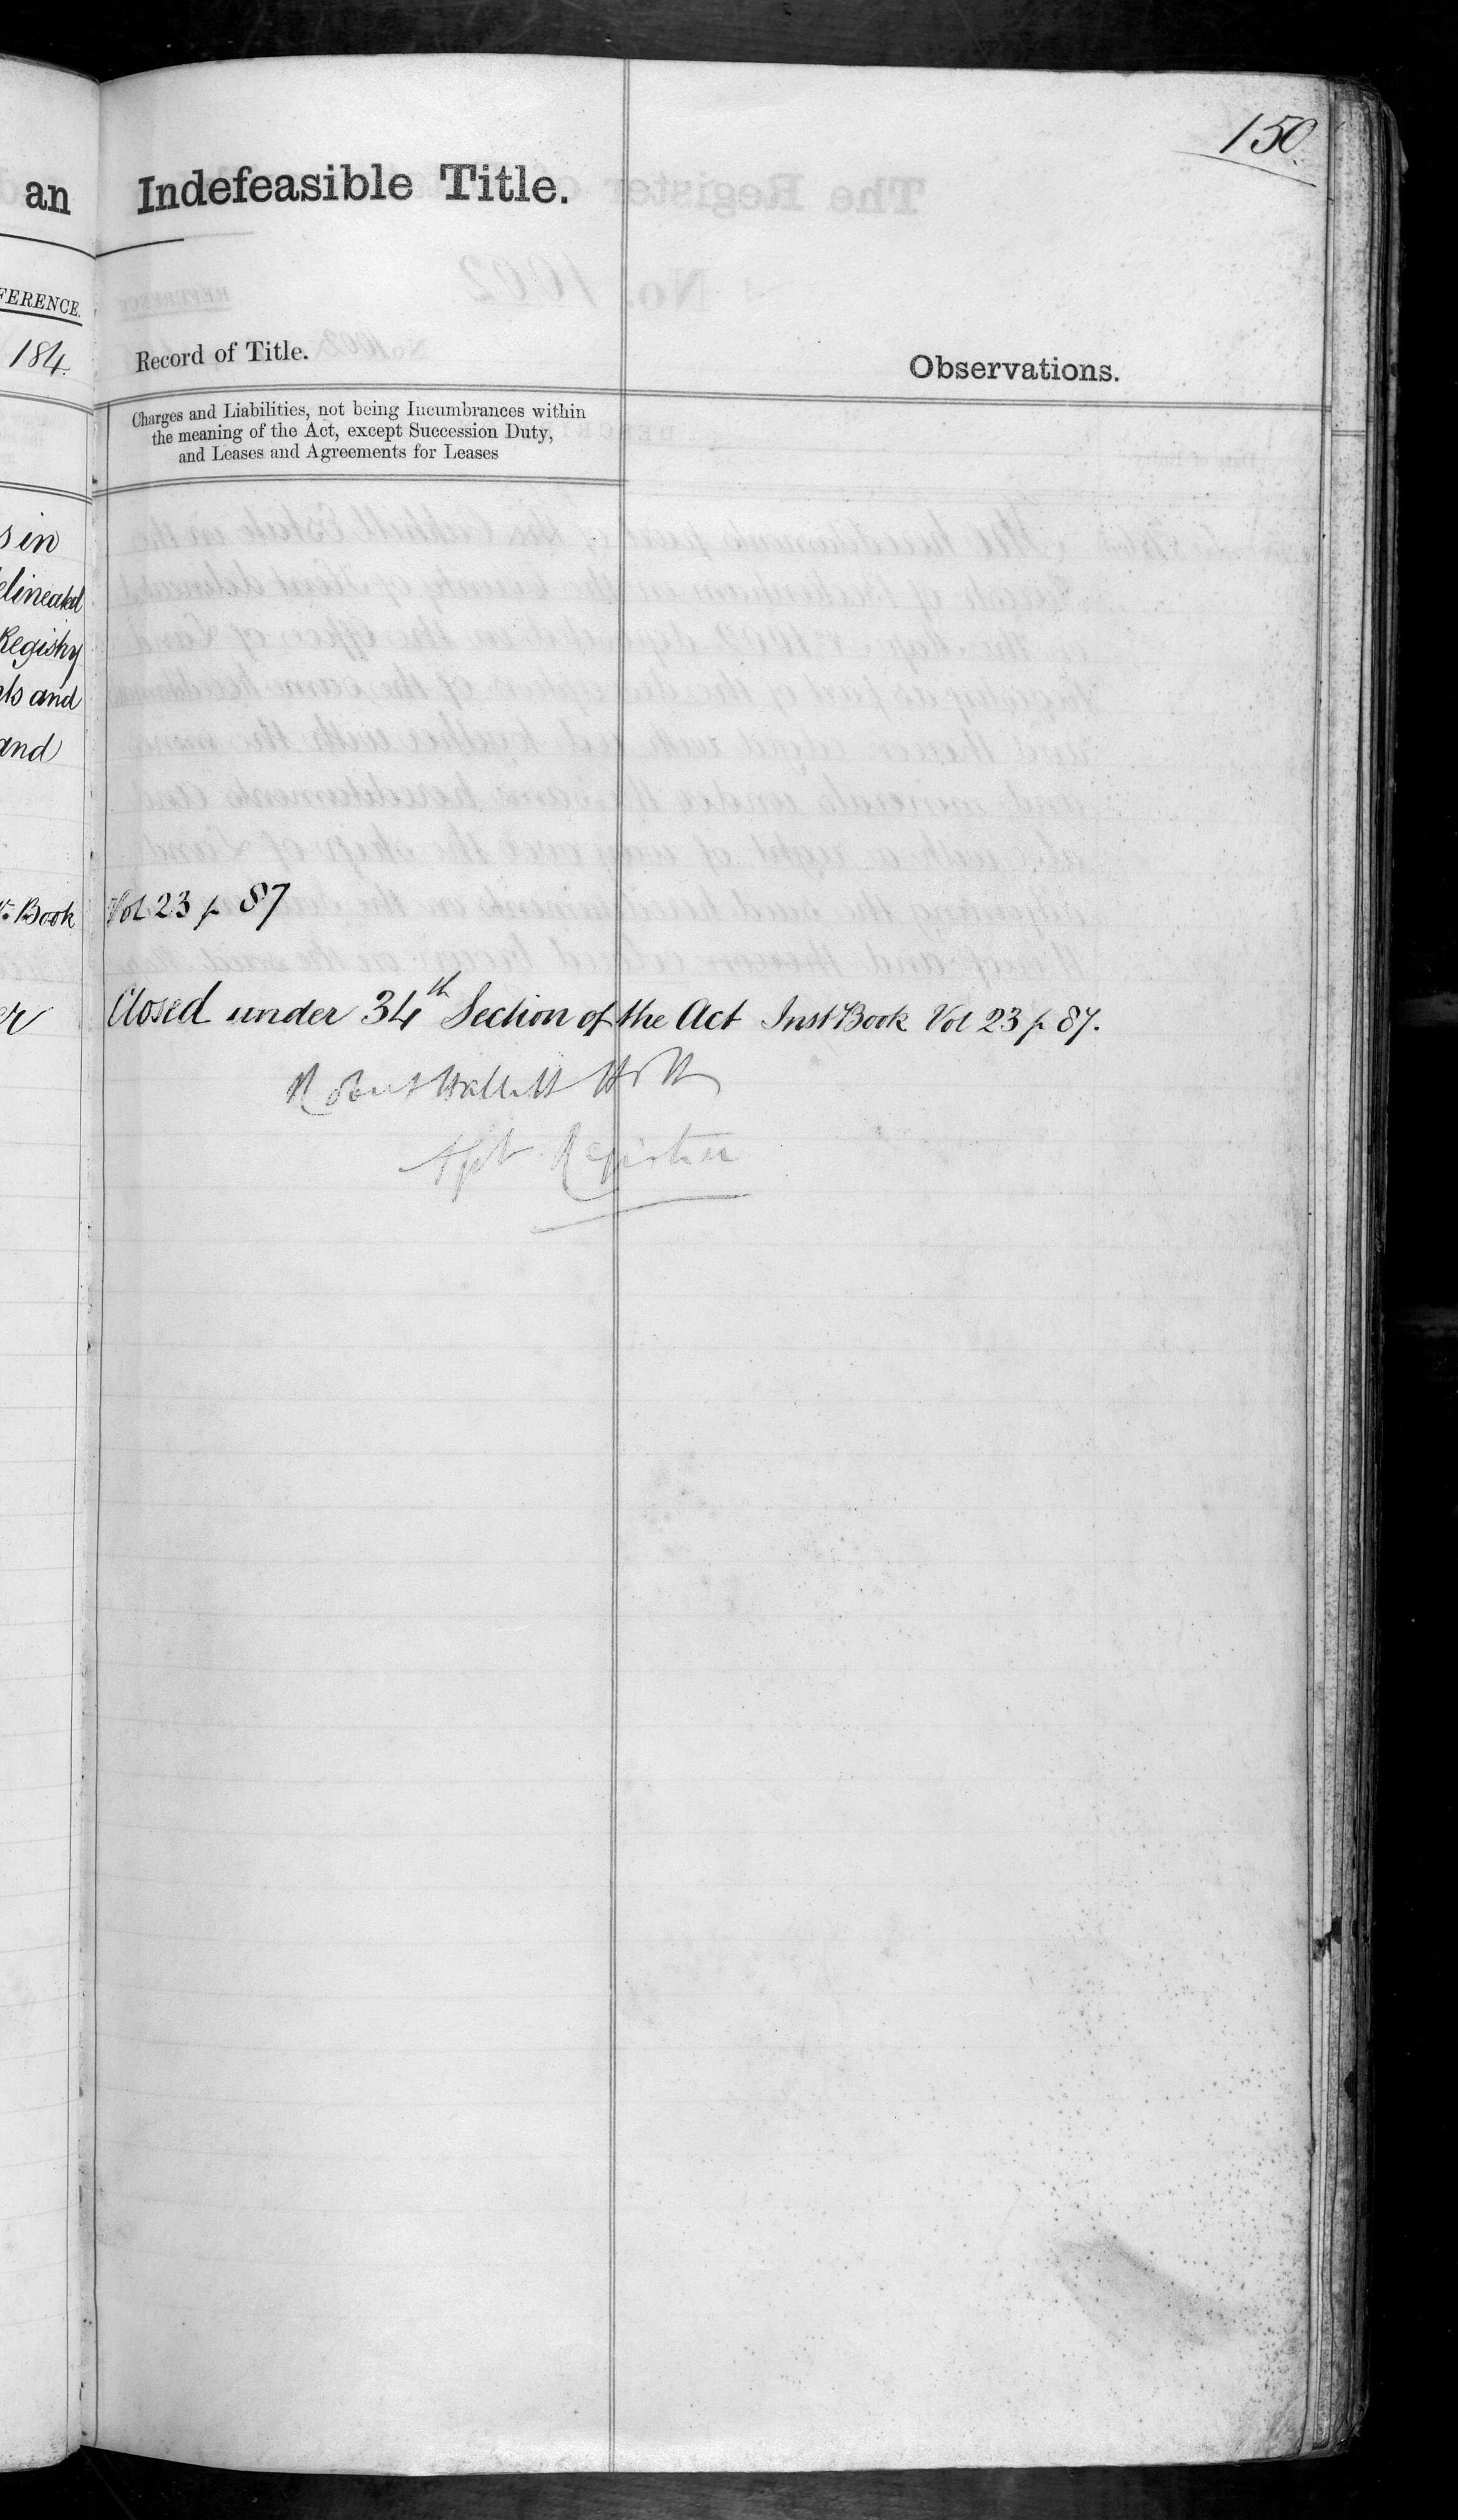 150.
an Indefeasible Title.
FERENCE.
184.
Record of Title.
Observations.
Charges and Liabilities, not being Incumbrances within
the meaning of the Act, except Succession Duty,
and Leases and Agreements for Leases
s in
elineated
Registry
ts and
and
Book Vol 23 p 87
er Closed under 34th Section of the Act Inst Book Vol 23 p 87.
Robert Hallett Holt
Asst Registrar